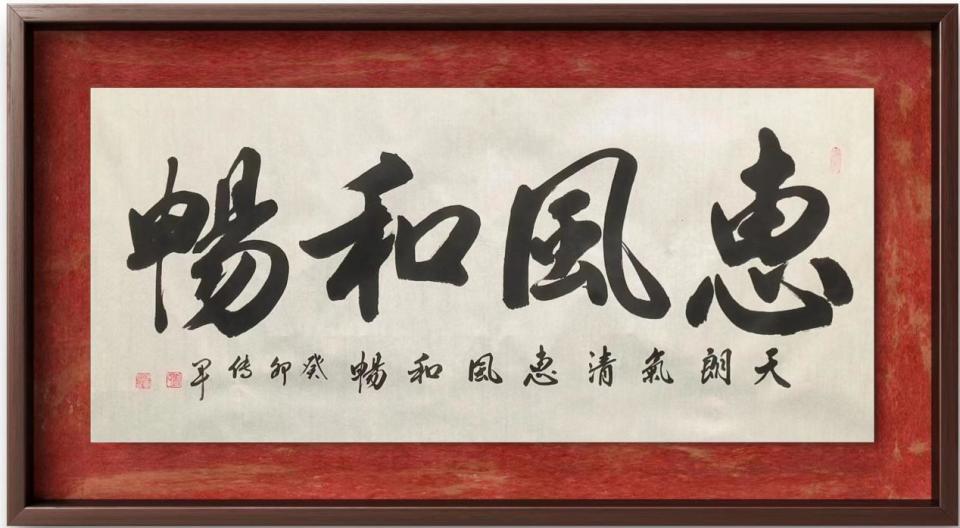 惠風和暢
天朗氣清惠風和暢癸卯傳軍